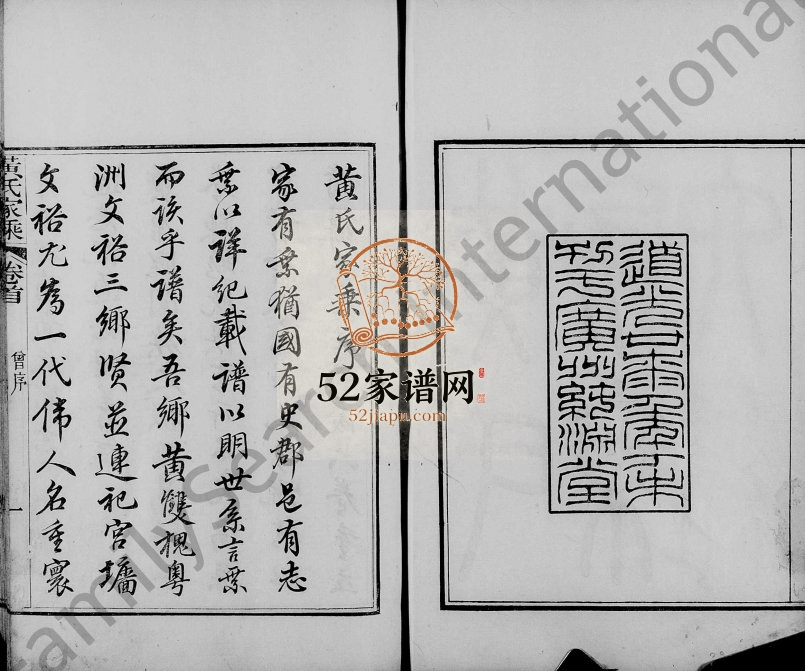 道光廿年未
刊于廣州純淵堂
黃氏家乘序
家有乘猶國有史郡邑有志
乘以詳紀載譜以明世系言乘
而該乎譜矣吾鄉黃雙槐粵
洲文裕三鄉賢並連祀宮墻
文裕尤爲一代偉人名重寰
黃氏家乘 卷首 曾序 一
52家谱网
52jiapu.com
FamilySearch International